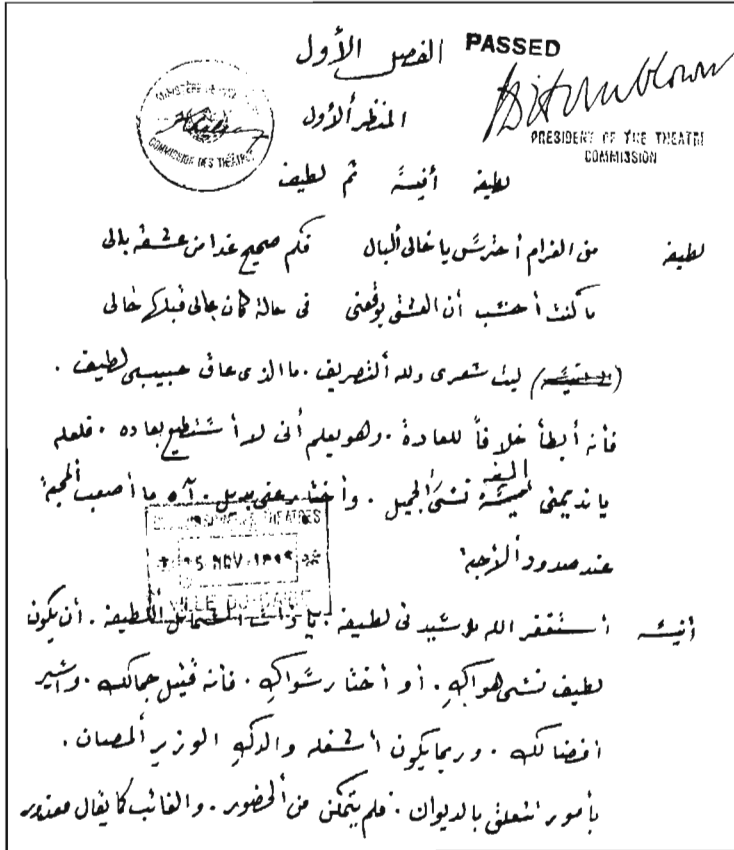 الفصل الأول
PASSED
المنظر ألأول
PRESIDENT OF THE THEATRE
COMMISSION
COMMISSION DES THÉATRES
لطيفه أنيسَّه ثم لطيف
لطيفه من الغرام أحترسَّ يا خالى ألبال فكم صحيح غدا من عشقه بالى
ما كنت أحسَّب أن العشق يوقعنى فى حالة كان بالى قبلها خالى
ليت شعرى ولله ألتصريف . ما الذى عاق حبيبى لطيف .
فأنه أبطأ خلافاً للعادة . وهو يعلم أنى لا أسَّتطيع بعاده . فلعله
يا نديمتى أليفه نسَّى ألجميل . وأختار عنى بديل . آه ما أصعب ألمحبة
عند صدود ألأحبة
NOV
أنيسه أسَّتغفر الله ملاسَّيدتى لطيفه . يا ذات الشمائل أللطيفه . أن يكون
لطيف نسَّى هواكِ . أو أختار سَّواكِ . فأنه قتيل جمالك . وأسَّير
أفضالك . وربما يكون أشغله والدكِ الوزير ألمصان .
بأمور تتعلق بالديوان . فلم يتمكن من ألحضور . والغائب كما يقال معذور